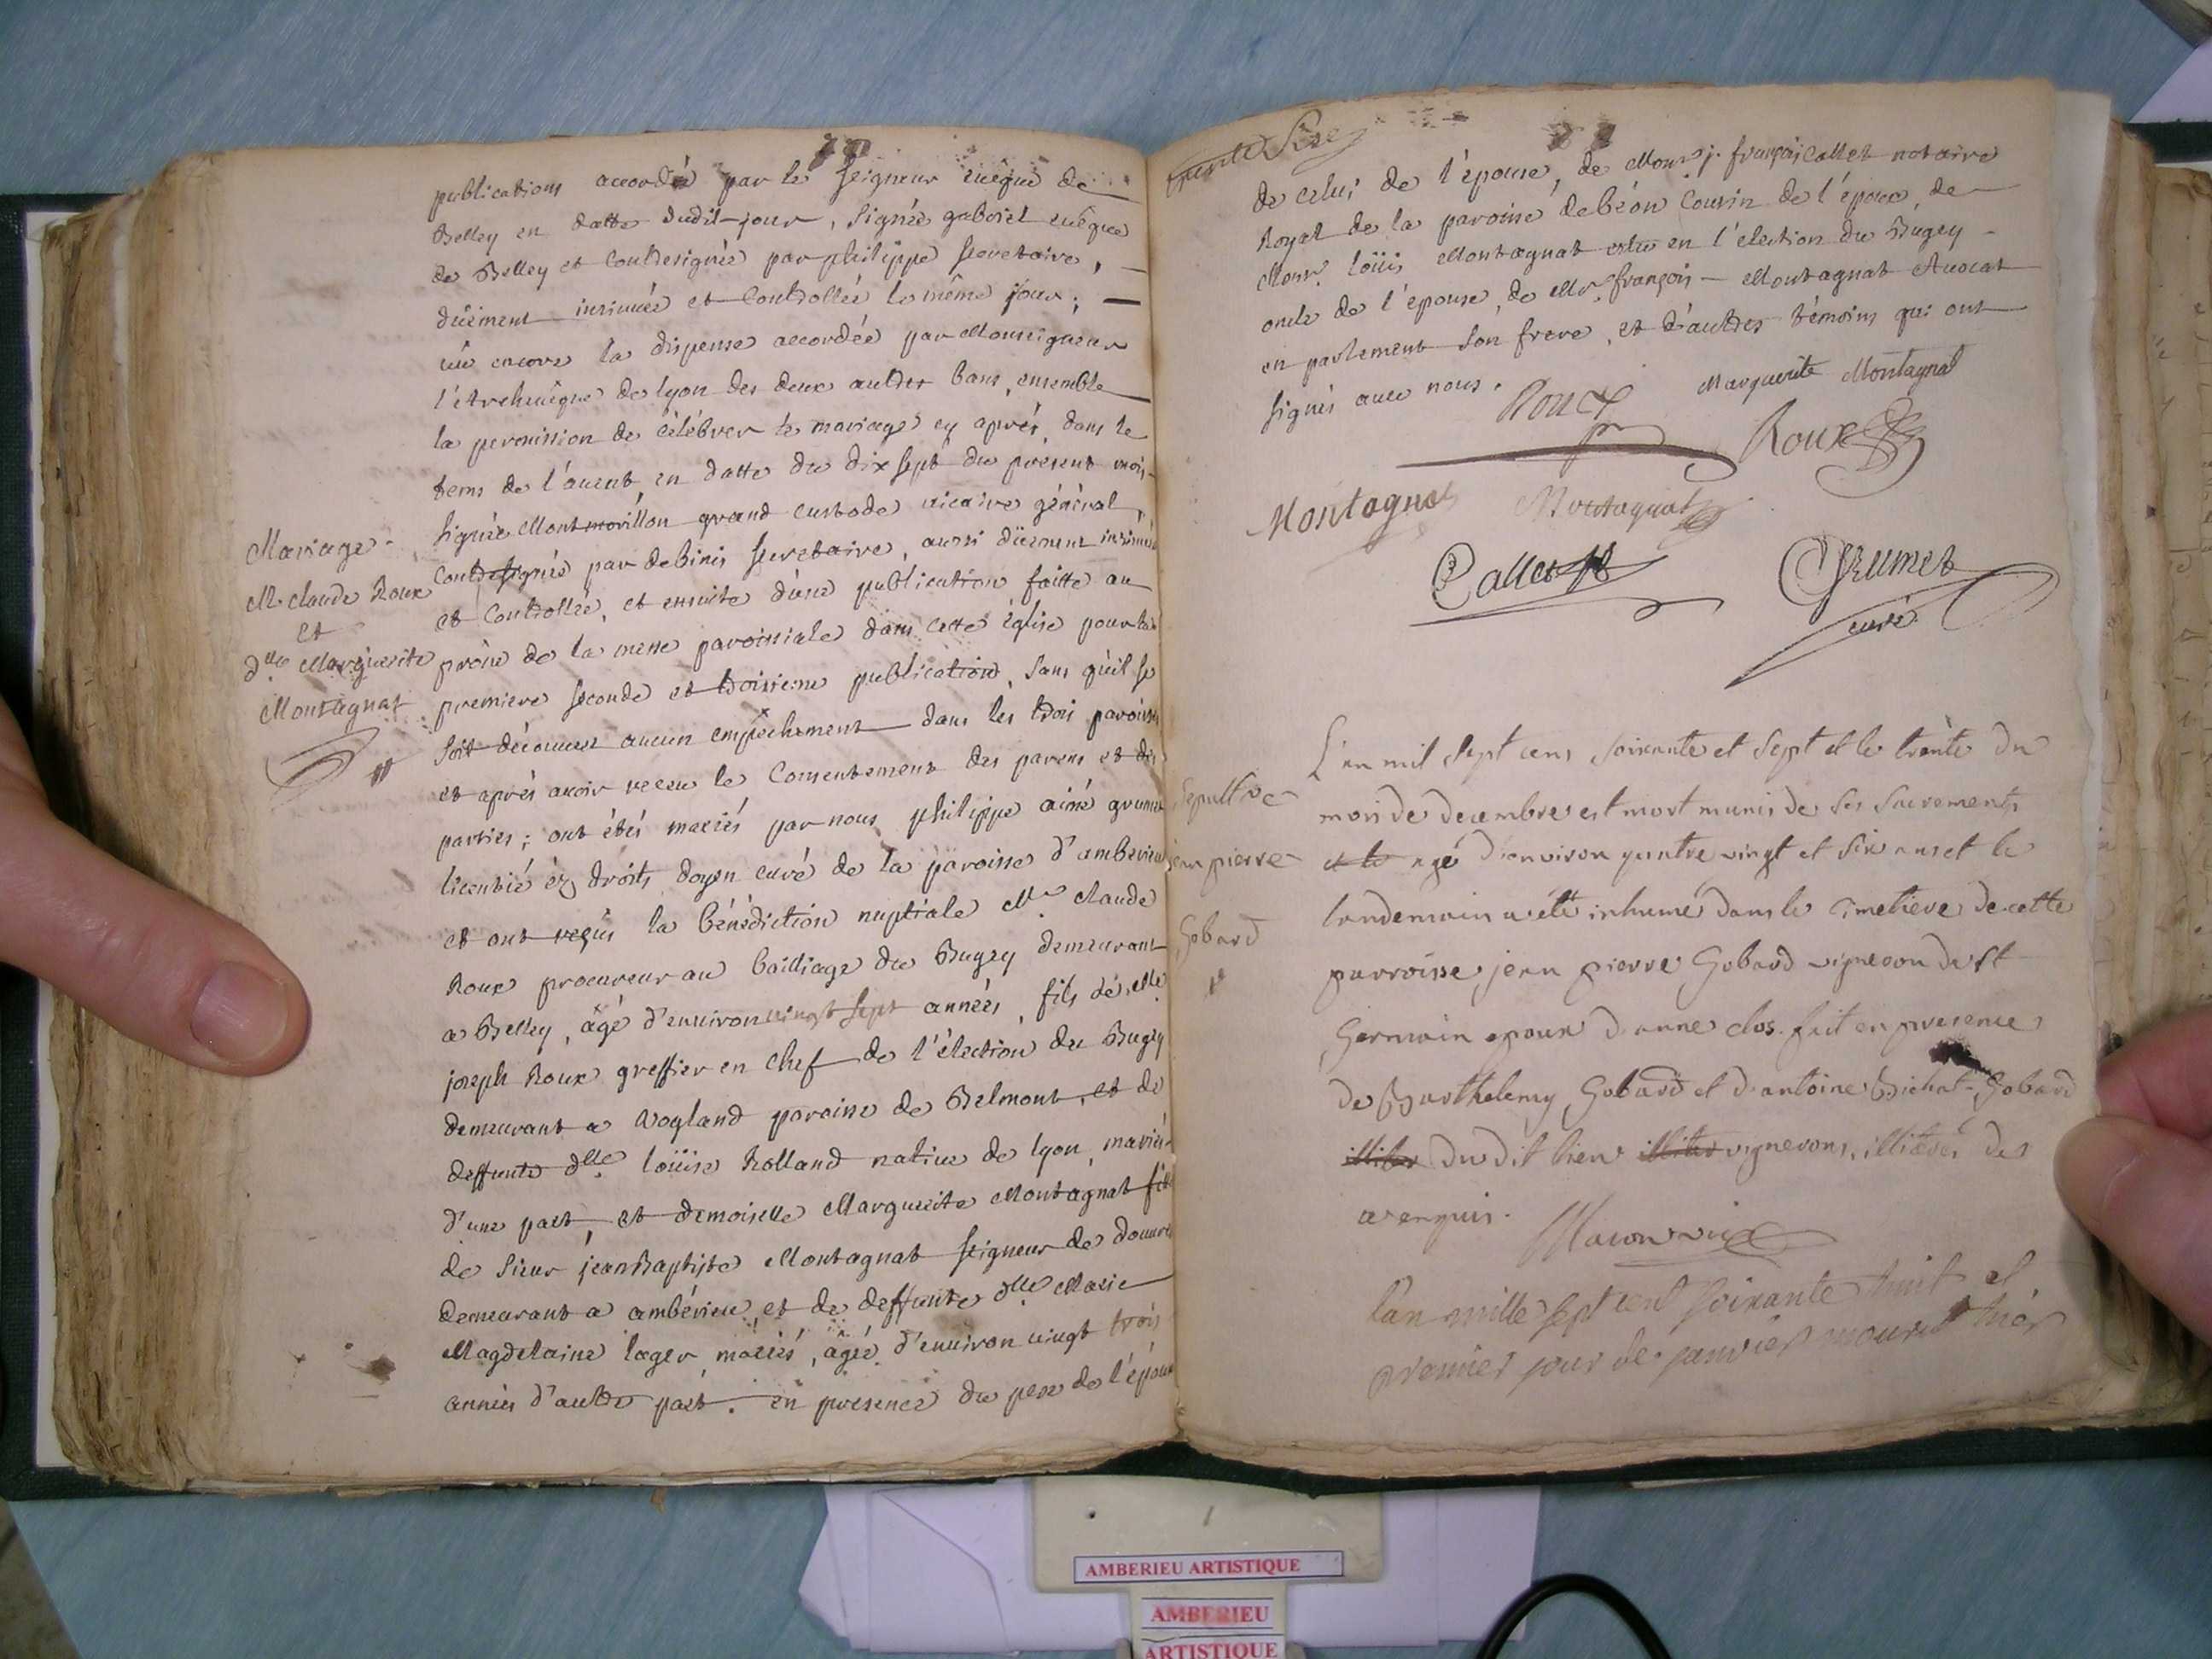 publications accordée par le seigneur evêque de
Belley en datte dudit jour, signée gabriel evêque
de Belley et contresignée par philippe secretaire,
düement insinuée et controllée le même jour;
vû encore la dispense accordée par Monseigneur
l'Archevêque de lyon des deux autres bans, ensemble
la permission de célébrer le mariage cy après, dans le
tems de l'avent, en datte du dix sept du present mois,
signée Montmorillon grand custode vicaire général,
contresignée par debinis secretaire, aussi düement insinuée
et controllée, et ensuite d'une publication faitte au
prône de la messe paroissiale dans cette église pour la
premiere seconde et troisieme publication, sans qu'il se
soit découvert aucun empêchement dans les trois paroisses
et après avoir receu le consentement des parens et des
parties; ont étés mariés par nous philippe aimé grumet
licentié ez droits doyen curé de la paroisse d'amberieu
et ont reçus la bénédiction nuptiale Mre claude
Roux procureur au bailliage du Bugey demeurant
a Belley, âgé d'environ vingt sept années, fils de
joseph Roux greffier en chef de l'élection du Bugey
demeurant a vogland paroisse de Belmont, et de
deffunte dlle loüise Rolland native de lyon, mariés
d'une part, et demoiselle Marguerite Montagnat fille
de sieur jean Baptiste Montagnat seigneur de douvre
demeurant a ambérieu, et de deffunte dlle Marie
Magdelaine lager, mariés, âgée d'environ vingt trois
années d'autre part. en presence du pere de l'époux
Mariage
M. claude Roux
et
dlle Marguerite
Montagnat
de celui de l'épouse, de Monsr j. françois Callet notaire
Royal de la paroisse de béon cousin de l'époux, de
Monsr loüis Montagnat en l'election du Bugey
oncle de l'épouse, de Mr françois Montagnat Avocat
en parlement son frere, et d'autres témoins qui ont
signés avec nous.
Roux Marguerite Montagnat
Roux
Montagnat Montagnat
Callet Grumet
curé
Sepultre
jean pierre
Gobard
L'an mil sept cens soixante et sept et le trente du
mois de decembre est mort munis de ses sacrements
et le agé d'environ quatre vingt et six ans et le
landemain a été inhumé dans le cimetiere de cette
parroisse jean pierre Gobard vigneron de st
Germain epoux d'anne clos. fait en presence
de Barthelemy Gobard et d'antoine Bichat Gobard
illiter du dit lieu illiter vignerons, illiterés de
ce enquis.
l'an mille sept cent soixante huit et
premier jour de janvier mourut hier
AMBERIEU ARTISTIQUE
AMBERIEU
ARTISTIQUE